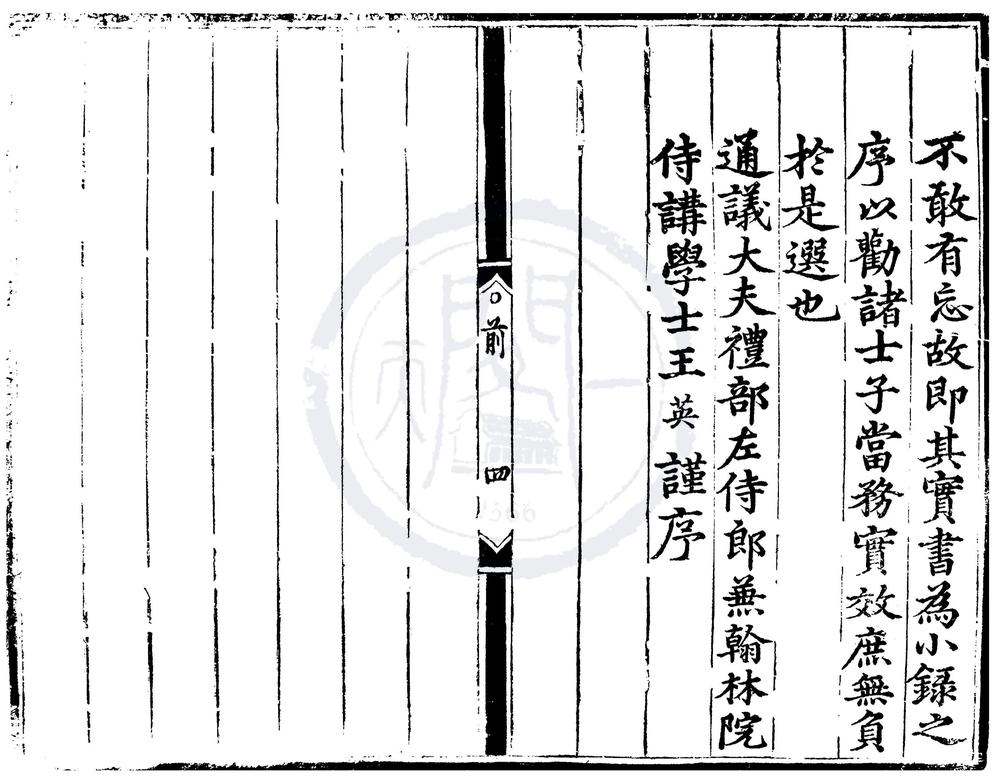 不敢有忘故即其實書為小録之
序以勸諸士子當務實效庶無負
扵是選也
通議大夫禮部左侍郎蕪翰林院
侍講學士王英謹序
前 四